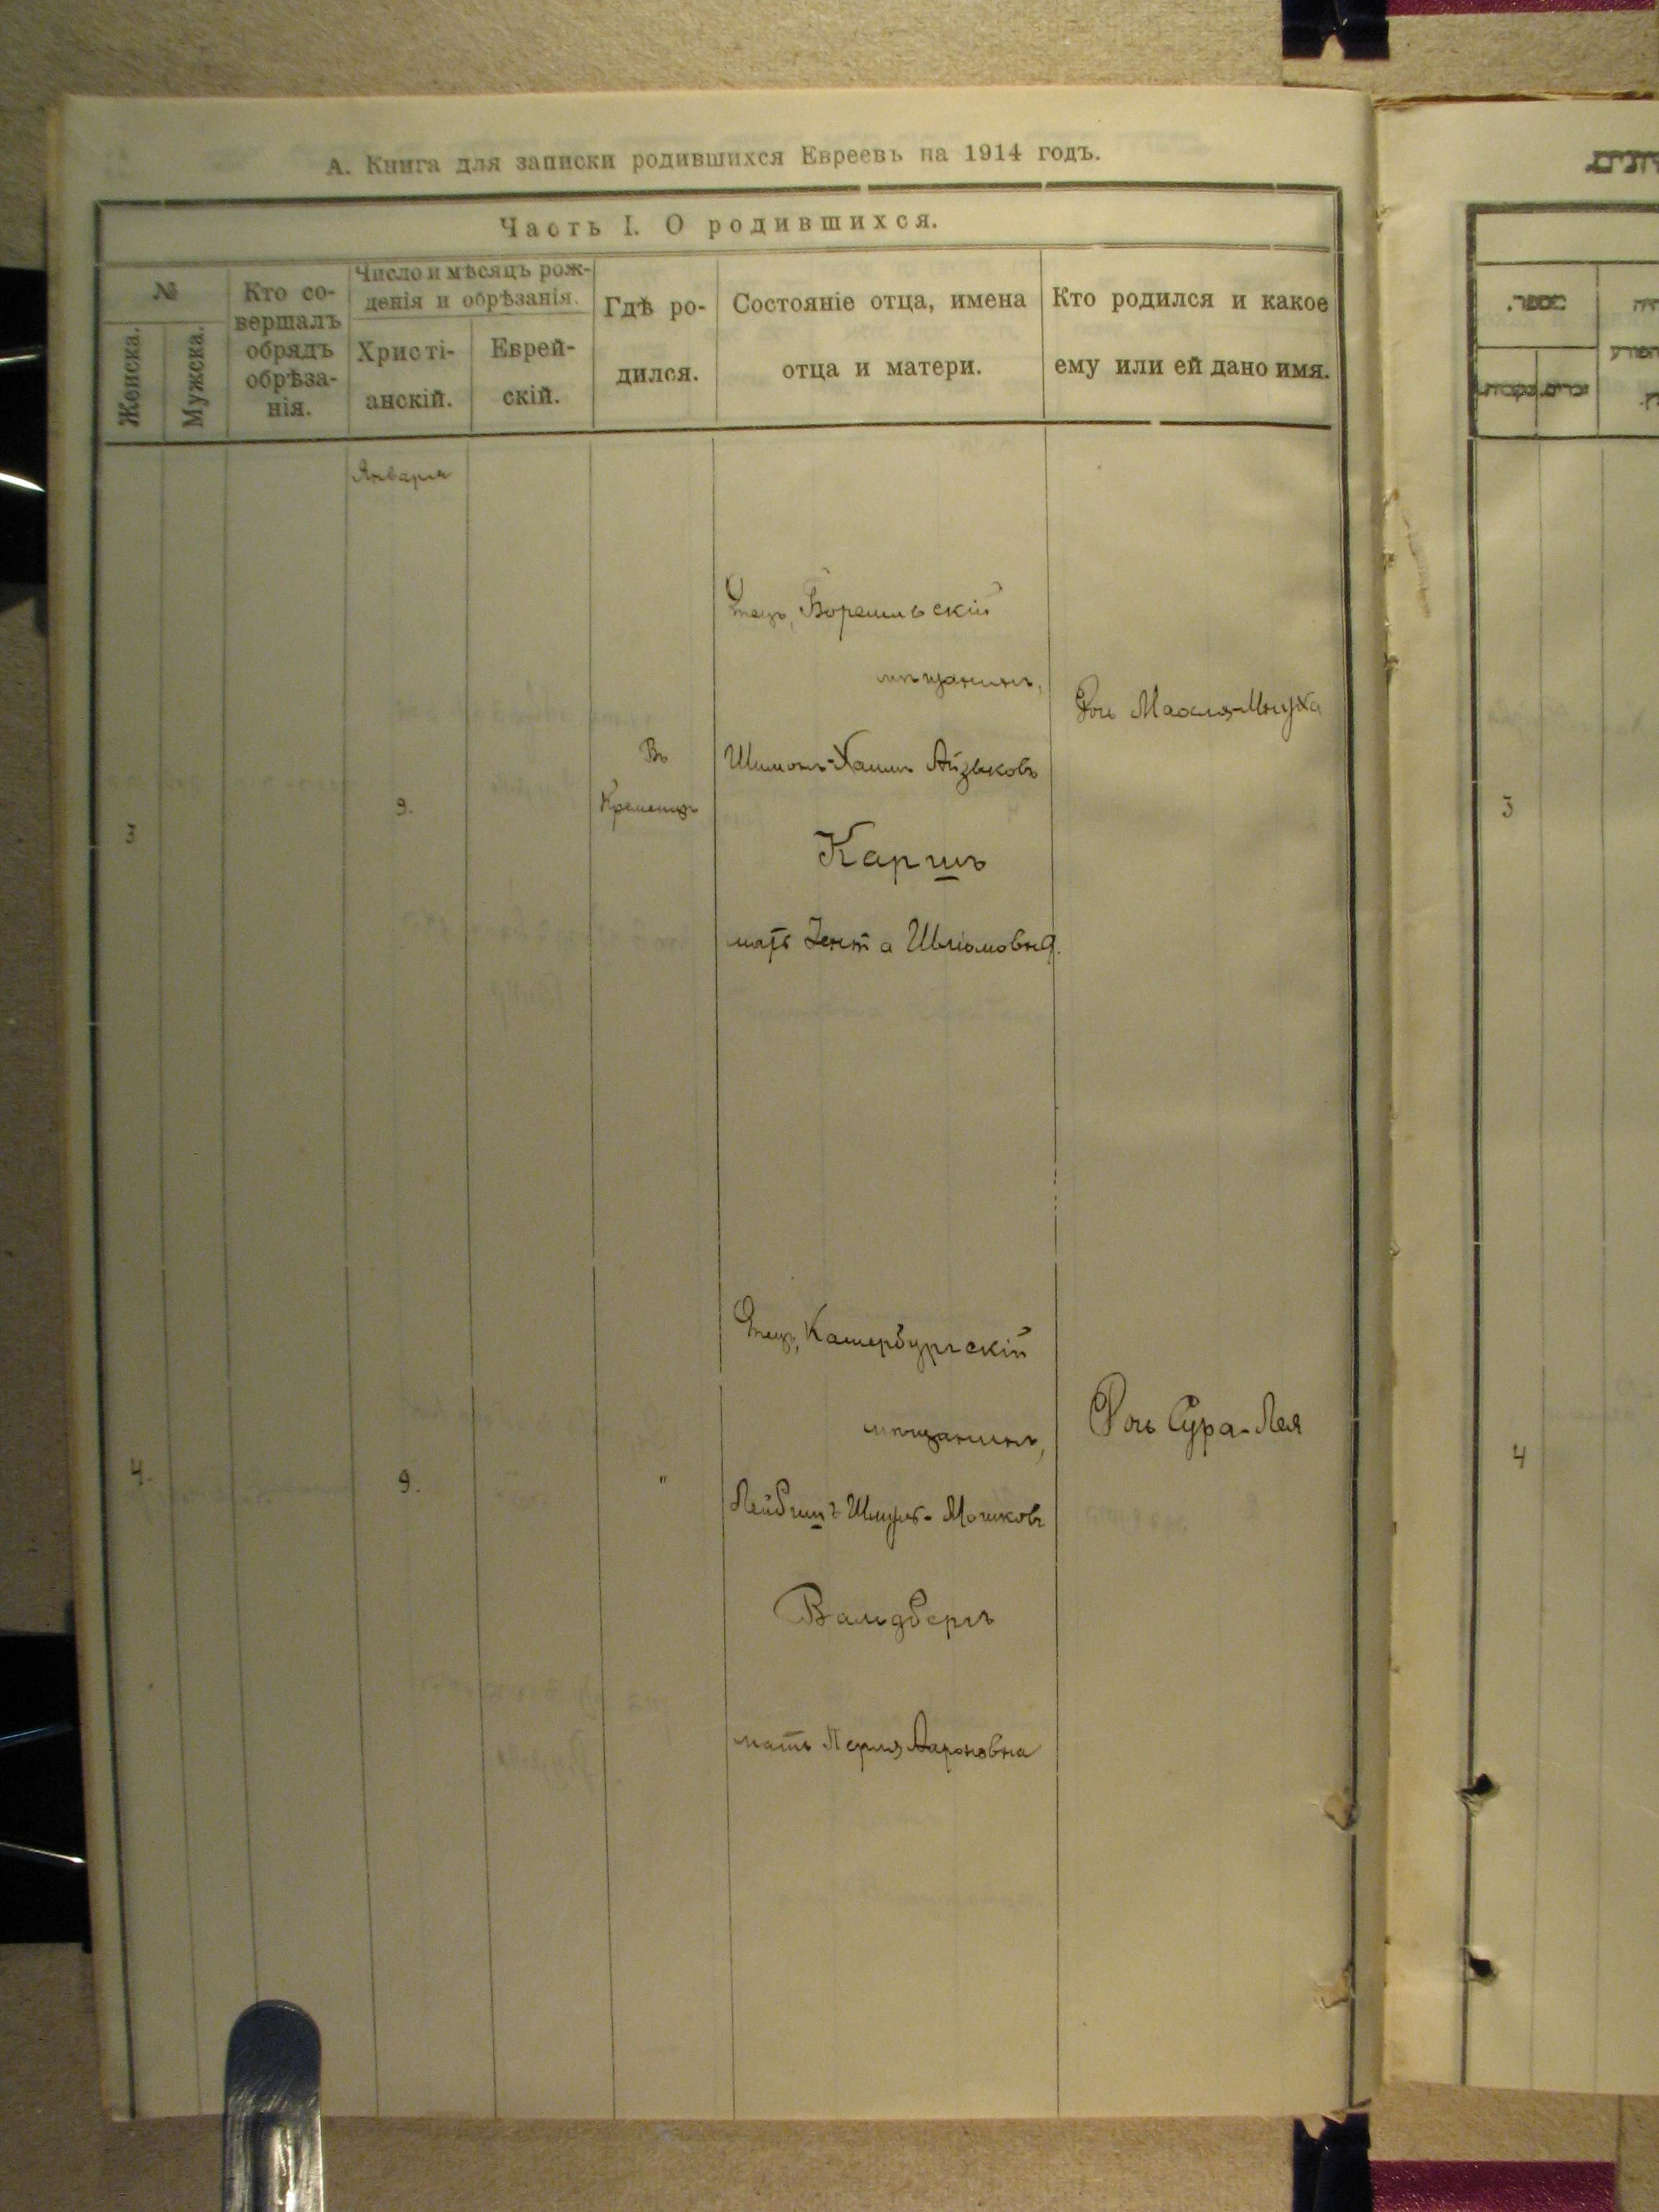 А. Книга для записки родившихся Евреевъ на 1914 годъ.
Часть I. О родившихся.
№
Женска.
Мужска.
Кто со-
вершалъ
обрядъ
обрѣза-
нія.
Число и мѣсяцъ рож-
денія и обрѣзанія.
Христі-
анскій.
Еврей-
скій.
Гдѣ ро-
дился.
Состояніе отца, имена
отца и матери.
Кто родился и какое
ему или ей дано имя.
Января
3
9.
Въ
Кременцѣ
Отецъ,
мѣщанинъ,
Шимонъ-Хаимъ Айзыковъ
Каршъ
мать Зента Шліомовна.
Дочь Махля-Мнуха
4.
9.
"
Отецъ, Катербургскій
мѣщанинъ,
Лейбишъ Шмуль-Мошковъ
Вальдбергъ
мать Перля Аароновна
Дочь Сура-Лея
מספר.
זכרים
נקבות
3
4